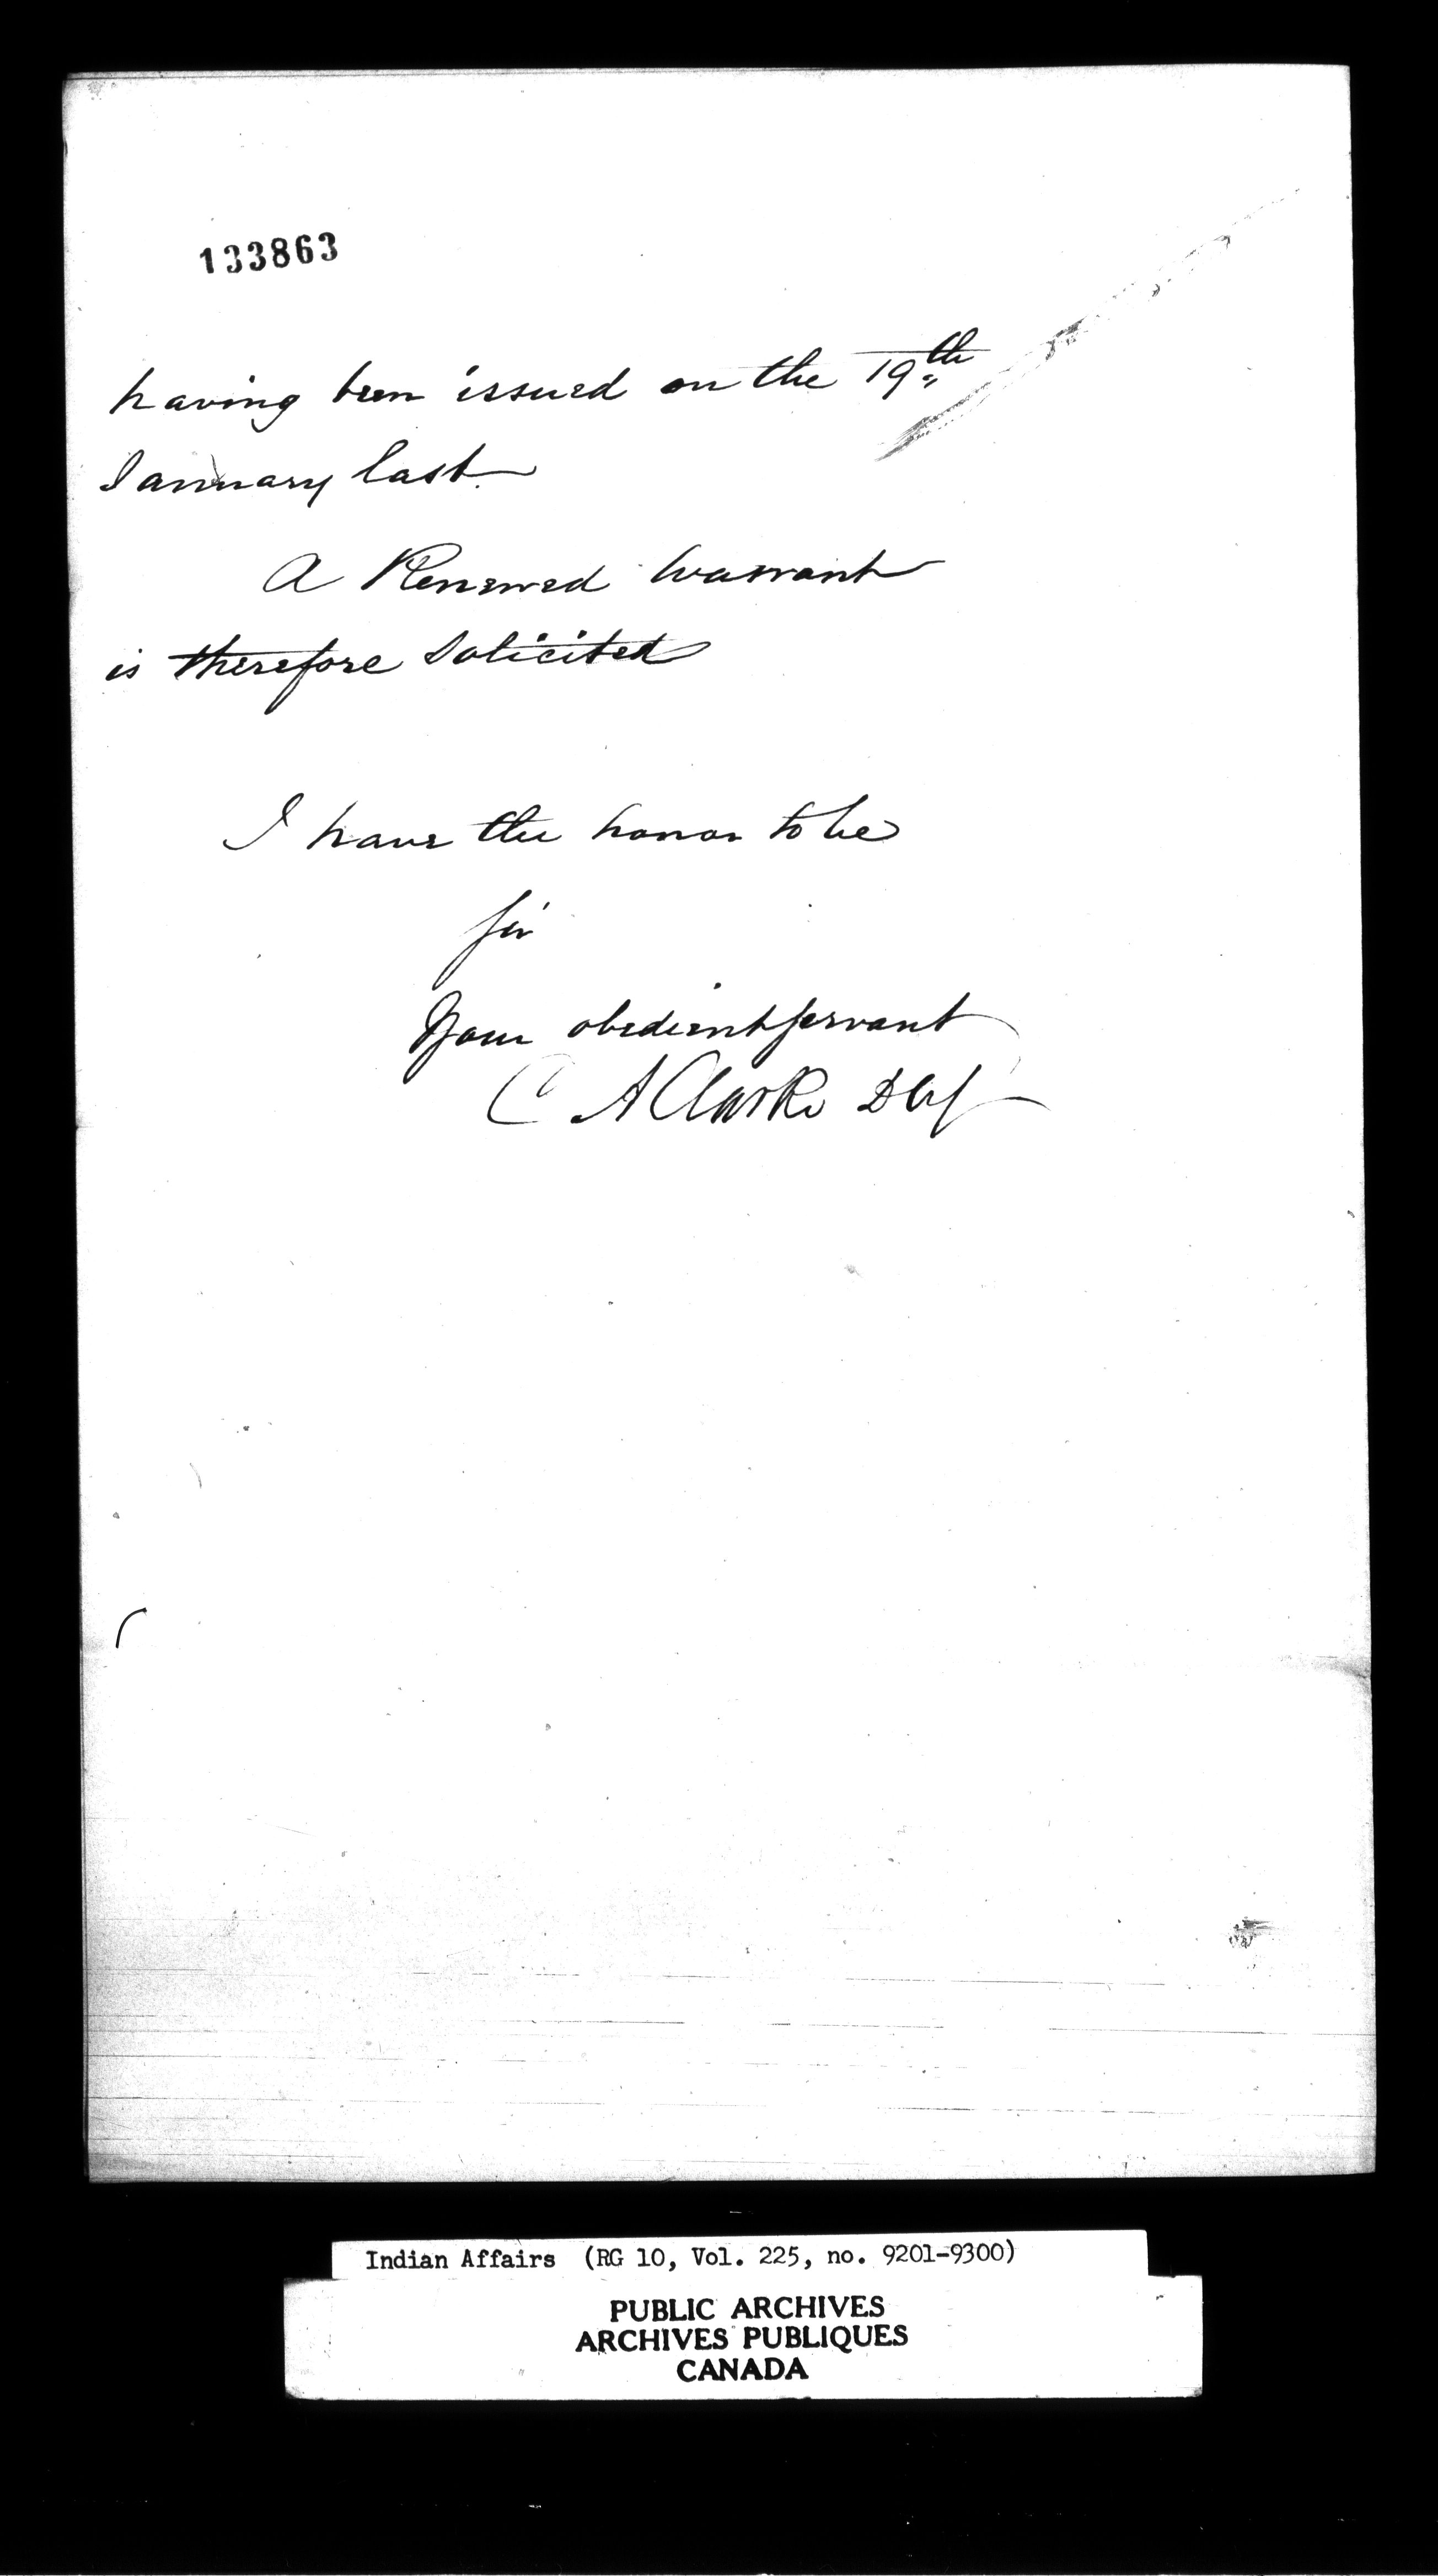 133863
having been issued on the 19th
January last.
A Renewed Warrant
is therefore solicited
I have the honor to be
Sir
Your obedient servant
C A Clarke
Indian Affairs (RG 10, Vol. 225, no. 9201-9300)
PUBLIC ARCHIVES
ARCHIVES PUBLIQUES
CANADA